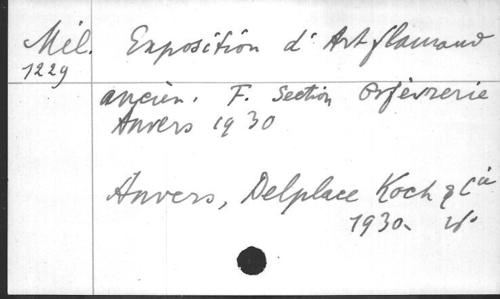 Mél. Exposition d'Art flamand
1229
ancien. F. Section Orfèvrerie
Anvers 1930
Anvers, Delplace Koch & Cie
1930.